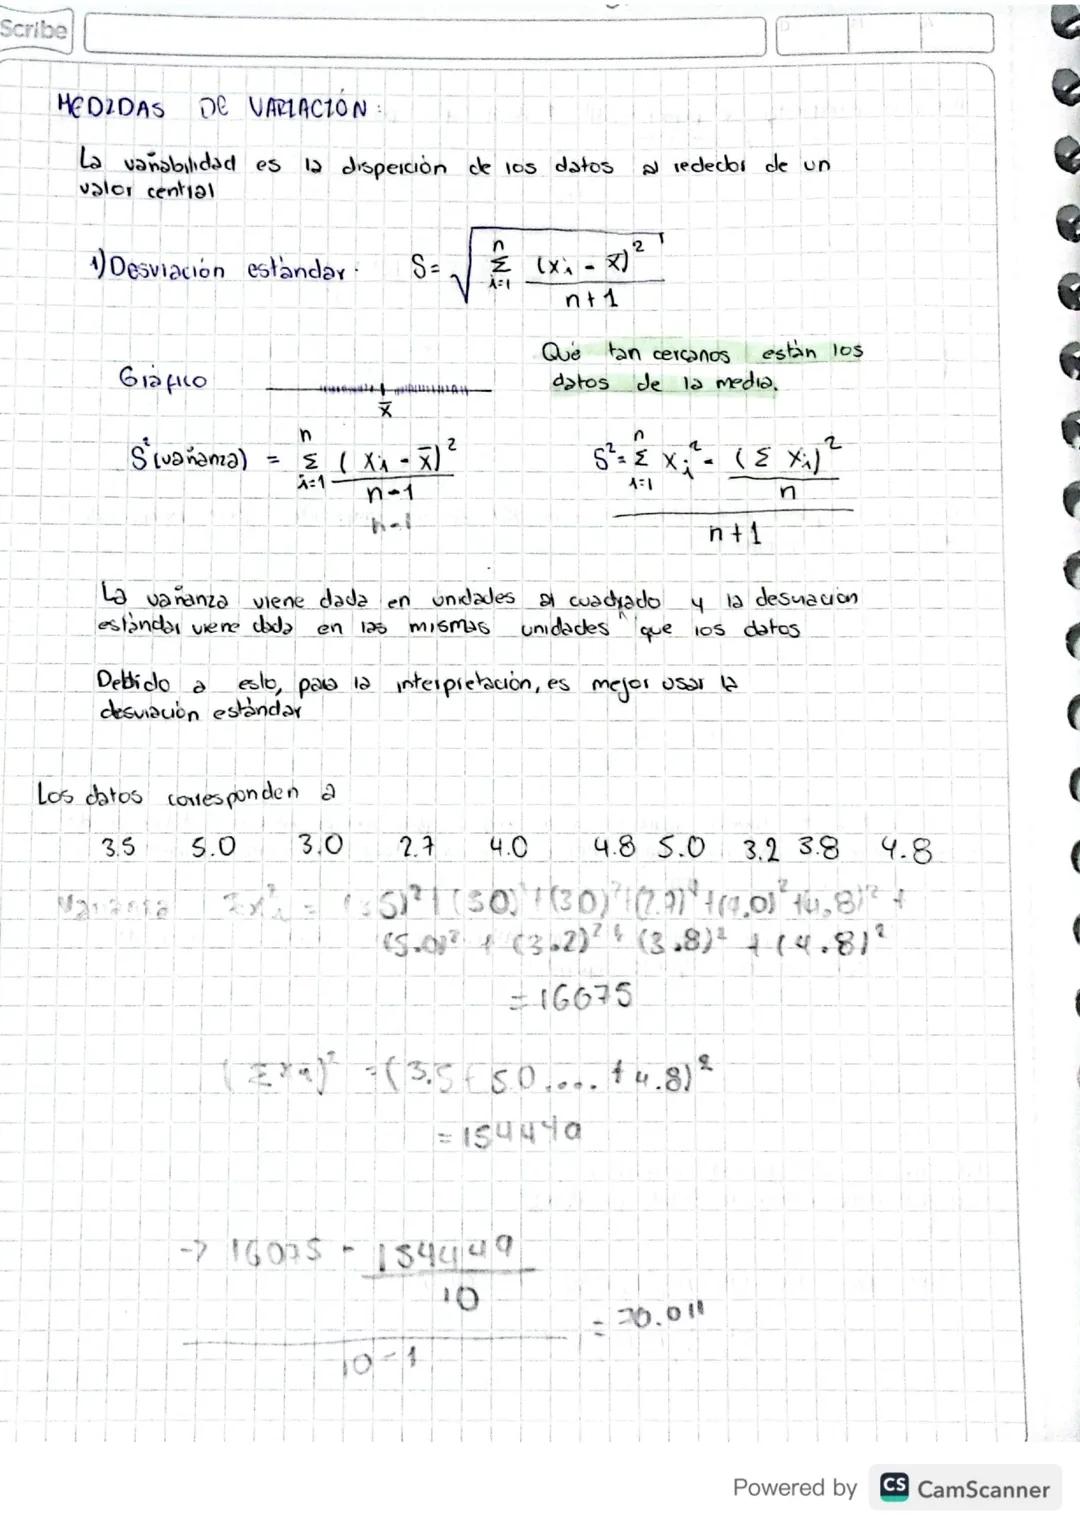 Scribe
MEDIDAS DE VARIACIÓN:
La variabilidad es la disperción de los datos al rededor de un
valor central
1) Desviación estándar. S = √ n Σ i=1 (xi - x̄)² / n+1
Qué tan cercanos están los
Gráfico
datos de la media.
x̄
S² (varianza) = n Σ i=1 (xi - x̄)² / n-1
n-1
S² = n Σ i=1 xi² - (Σ xi)² / n
n+1
La varianza viene dada en unidades al cuadrado y la desviación
estándar viene dada en las mismas unidades que los datos
Debido a esto, para la interpretación, es mejor usar la
desviación estándar
Los datos corresponden a
3.5 5.0 3.0 2.7 4.0 4.8 5.0 3.2 3.8 4.8
Varianza Σxi² = (3.5)² + (50)² + (30)² + (2.7)² + (4.0)² + (4.8)² +
(5.0)² + (3.2)² + (3.8)² + (4.8)²
= 16075
(Σxi)² = (3.5 + 50.... + 4.8)²
= 154449
→ 16075 - 154449
10
= 70.011
10-1
Powered by CS CamScanner